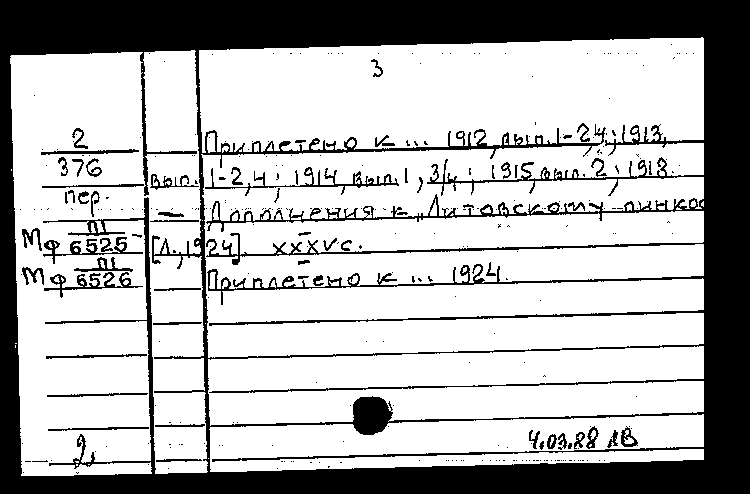 3
2 Приплетено к ... 1912, вып. 1-2,4; 1913,
376 вып. 1-2,4; 1914, вып. 1, 3/4; 1915, вып. 2; 1918.
пер. — Дополнения к „Литовскому пинкос
Мф П1/6525 [Л., 1924]. XXXV с.
Мф П1/6526 Приплетено к ... 1924.
2, 4.03.88 ЛВ